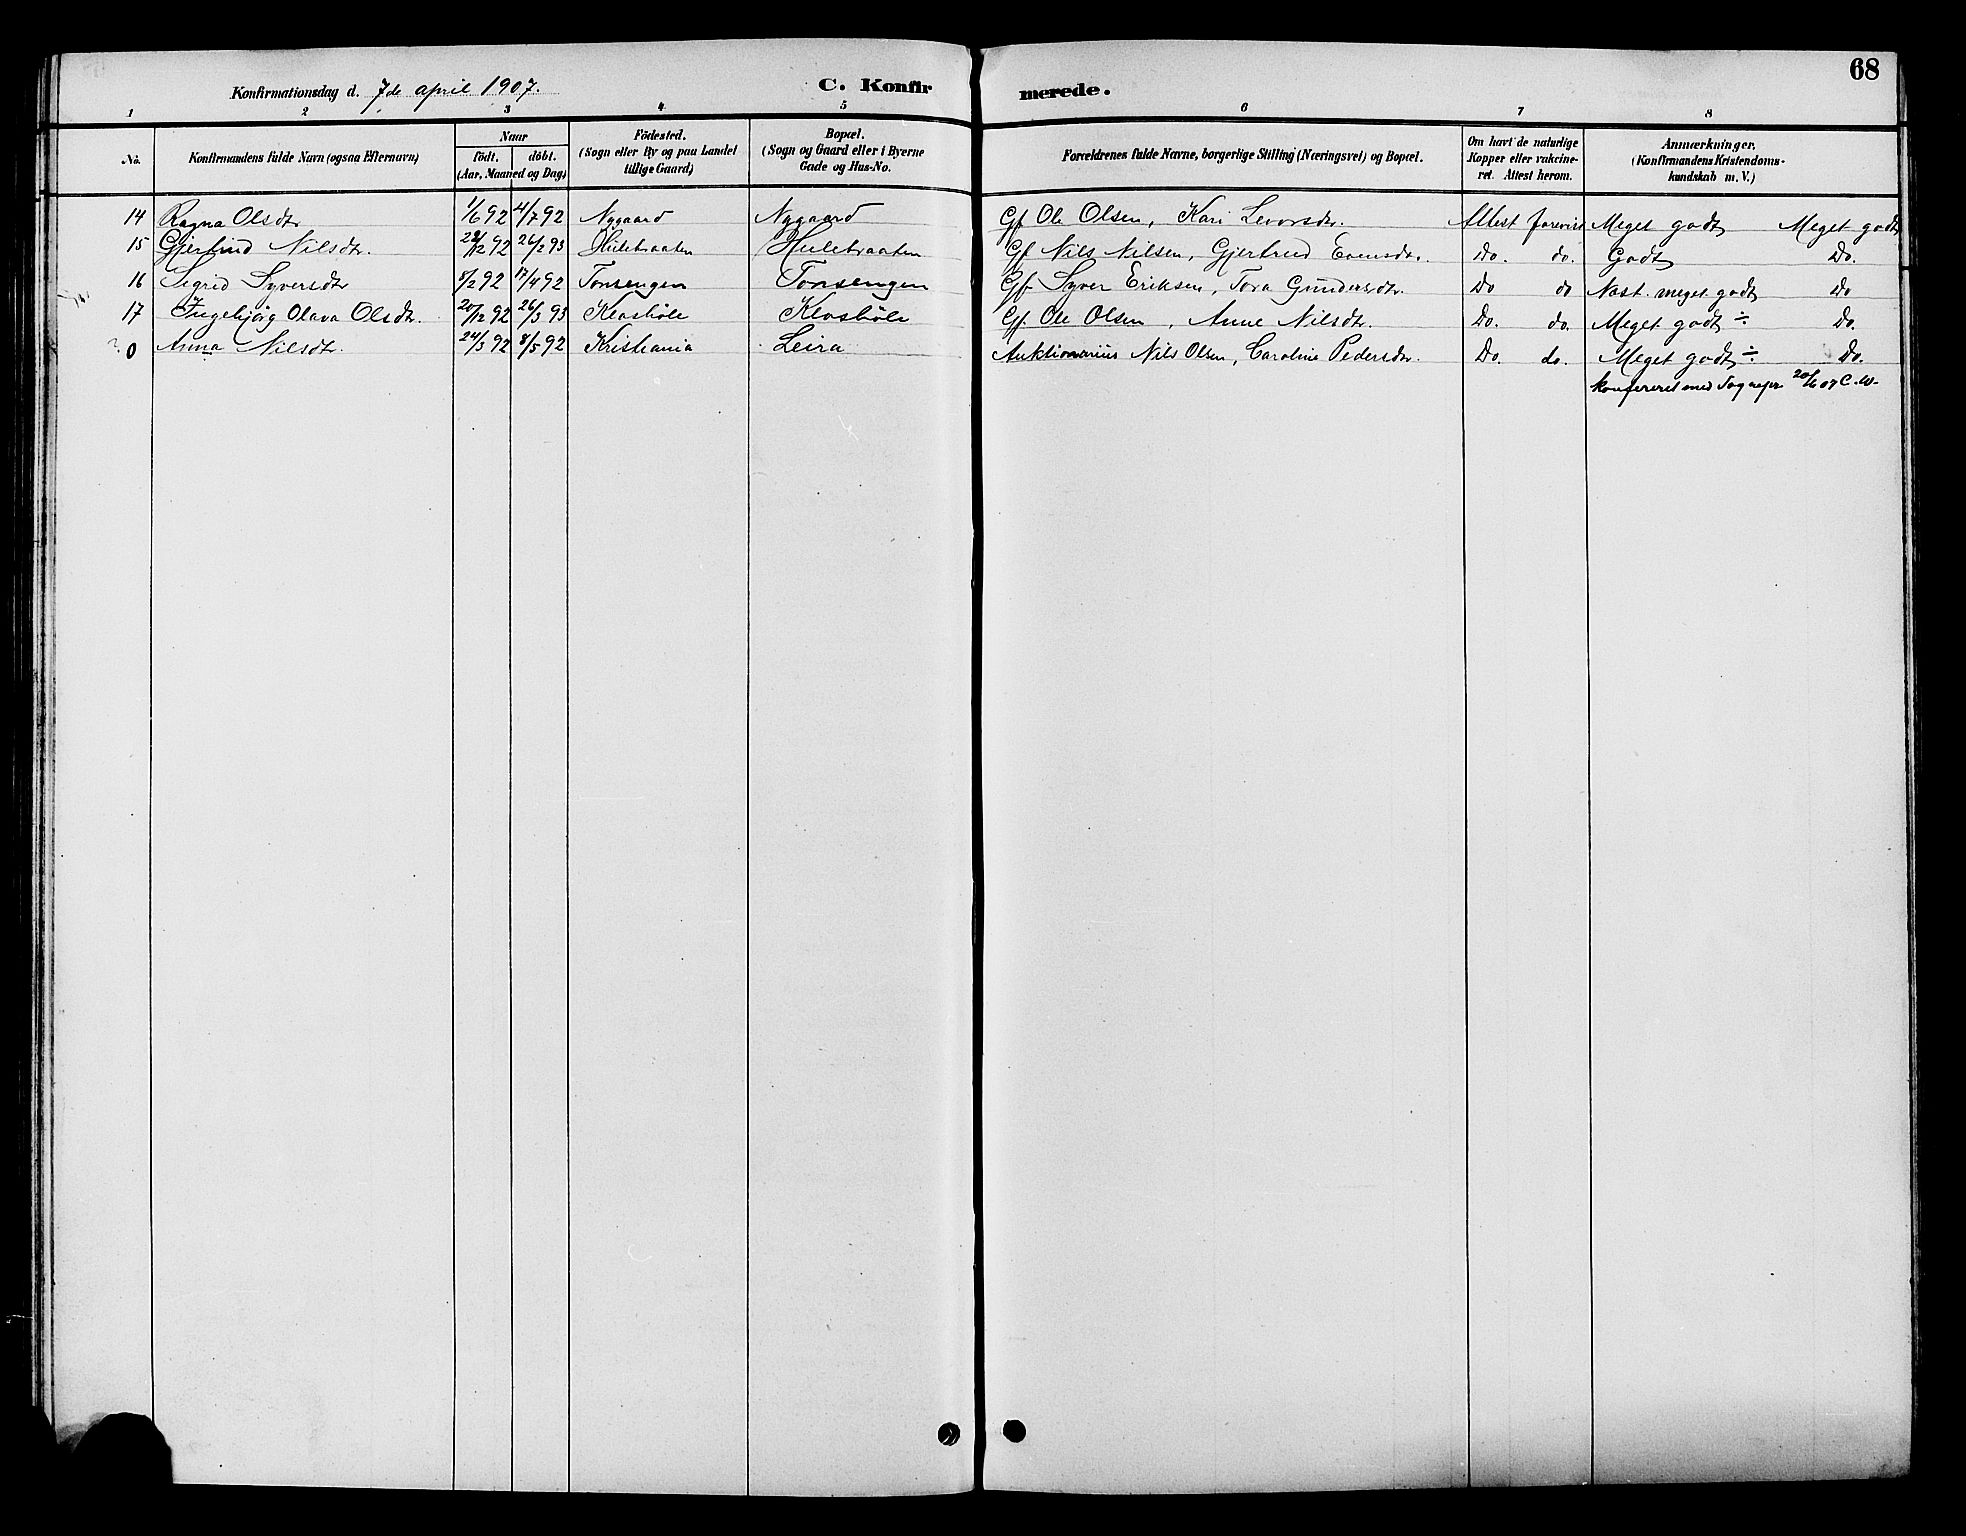 68
Konfirmationsdag d. 7de april 1907. C. Konfir merede.
1 2 3 4 5 6 7 8
No. Konfirmandens fulde Navn (ogsaa Efternavn) Naar födt. döbt. (Aar, Maaned og Dag) Födested. (Sogn eller By og paa Landet tillige Gaard) Bopæl. (Sogn og Gaard eller i Byerne Gade og Hus-No. Forældrenes fulde Navne, borgerlige Stilling (Næringsvei) og Bopæl. Om havt de naturlige Kopper eller vakcineret. Attest herom. Anmærkninger. (Konfirmandens Kristendomskundskab m. V.)
14 Ragna Olsdtr 1/6 92 4/7 92 Nygaard Nygaard Gf Ole Olsen, Kari Levorsdtr. Attest forevist Meget godt Meget godt
15 Gjertrud Nilsdtr. /12 92 26/2 93 Hulebraaten Gf Nils Nilsen, Gjertrud Evensdtr. Do. do. Godt Do.
16 Sigrid Syversdtr 8/2 92 17/4 92 Tonsengen Tonsengen Gf Syver Eriksen, Tora Gundersdtr. Do do Næst. meget godt Do
17 Ingebjörg Olava Olsdtr. 20/12 92 26/3 93 Gf. Ole Olsen, Anne Nilsdtr. Do. do. Meget godt ÷ Do.
0 Anna Nilsdtr. 24/3 92 8/5 92 Kristiania Leira Auktionarius Nils Olsen, Caroline Pedersdtr. Do. do. Meget godt ÷ Do.
konfereret med Sognepr 20/6 07 C. W.